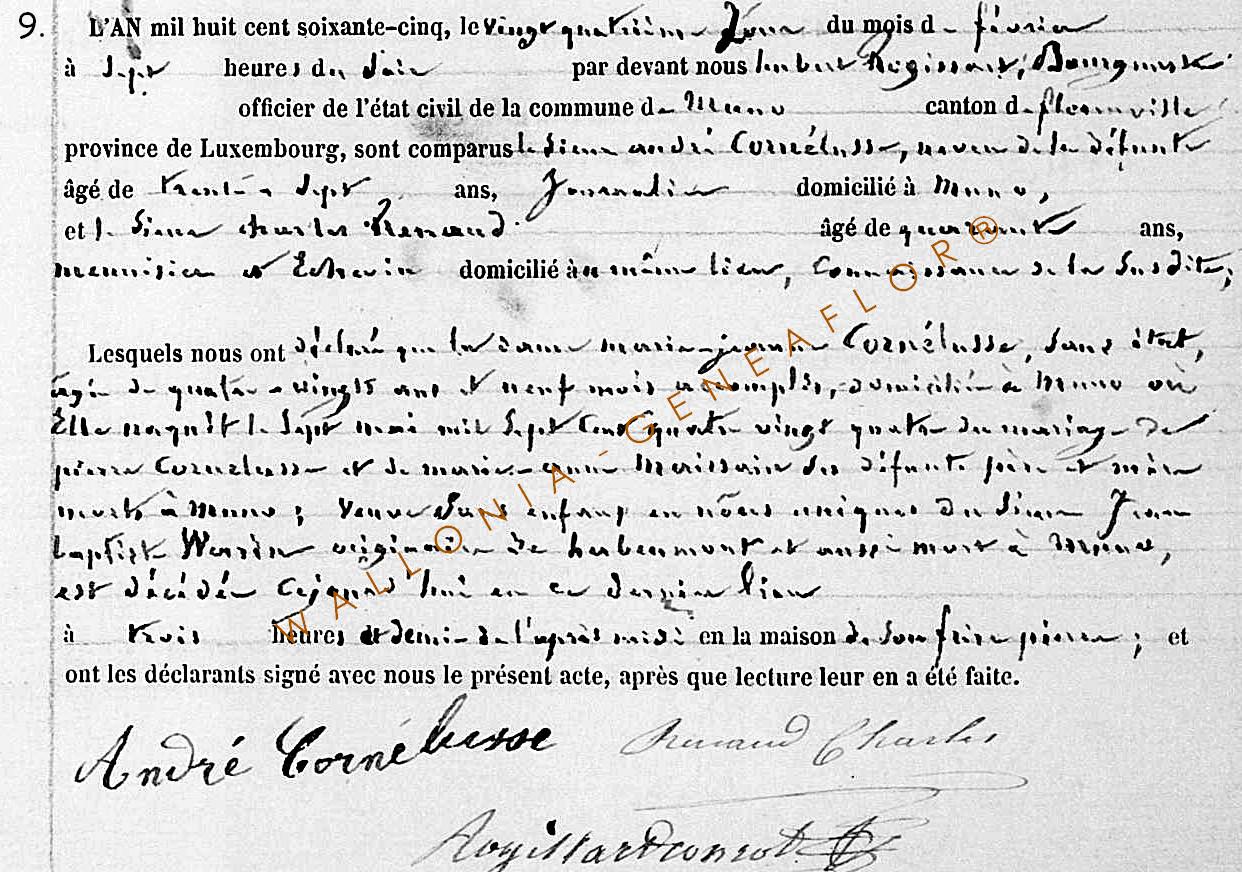 9.
L'AN mil huit cent soixante-cinq, le vingt quatrième Jour du mois de février
à Sept heures du Soir par devant nous hubert Rogissart, Bourgmestre
officier de l'état civil de la commune de Muno canton de florenville
province de Luxembourg, sont comparus le Sieur andré Cornélusse, neveu de la défunte
âgé de trente Sept ans, Journalier domicilié à Muno,
et le Sieur charles Renaud âgé de quarante ans,
menuisier et Echevin domicilié au même lieu, Connaissance de la Susdite,
Lesquels nous ont déclaré que la dame marie-jeanne Cornélusse, Sans état,
agée de quatre-vingts ans et neuf mois accomplis, domiciliée à Muno où
Elle naquît le Sept mai mil Sept Cent quatre vingt quatre du mariage de
pierre Cornelusse et de marie-anne Maissain des défunts père et mère
morts à muno ; veuve Sans enfans en nôces uniques du Sieur Jean
baptiste originaire de herbeumont et aussi mort à Muno,
est décédée Cejourd'hui en ce dernier lieu
à trois heures et demie de l'après midi en la maison de Son frère pierre ; et
ont les déclarants signé avec nous le présent acte, après que lecture leur en a été faite.
André Cornélusse Renaud Charles
Rogissart
WALLONIA-GENEAFLOR®